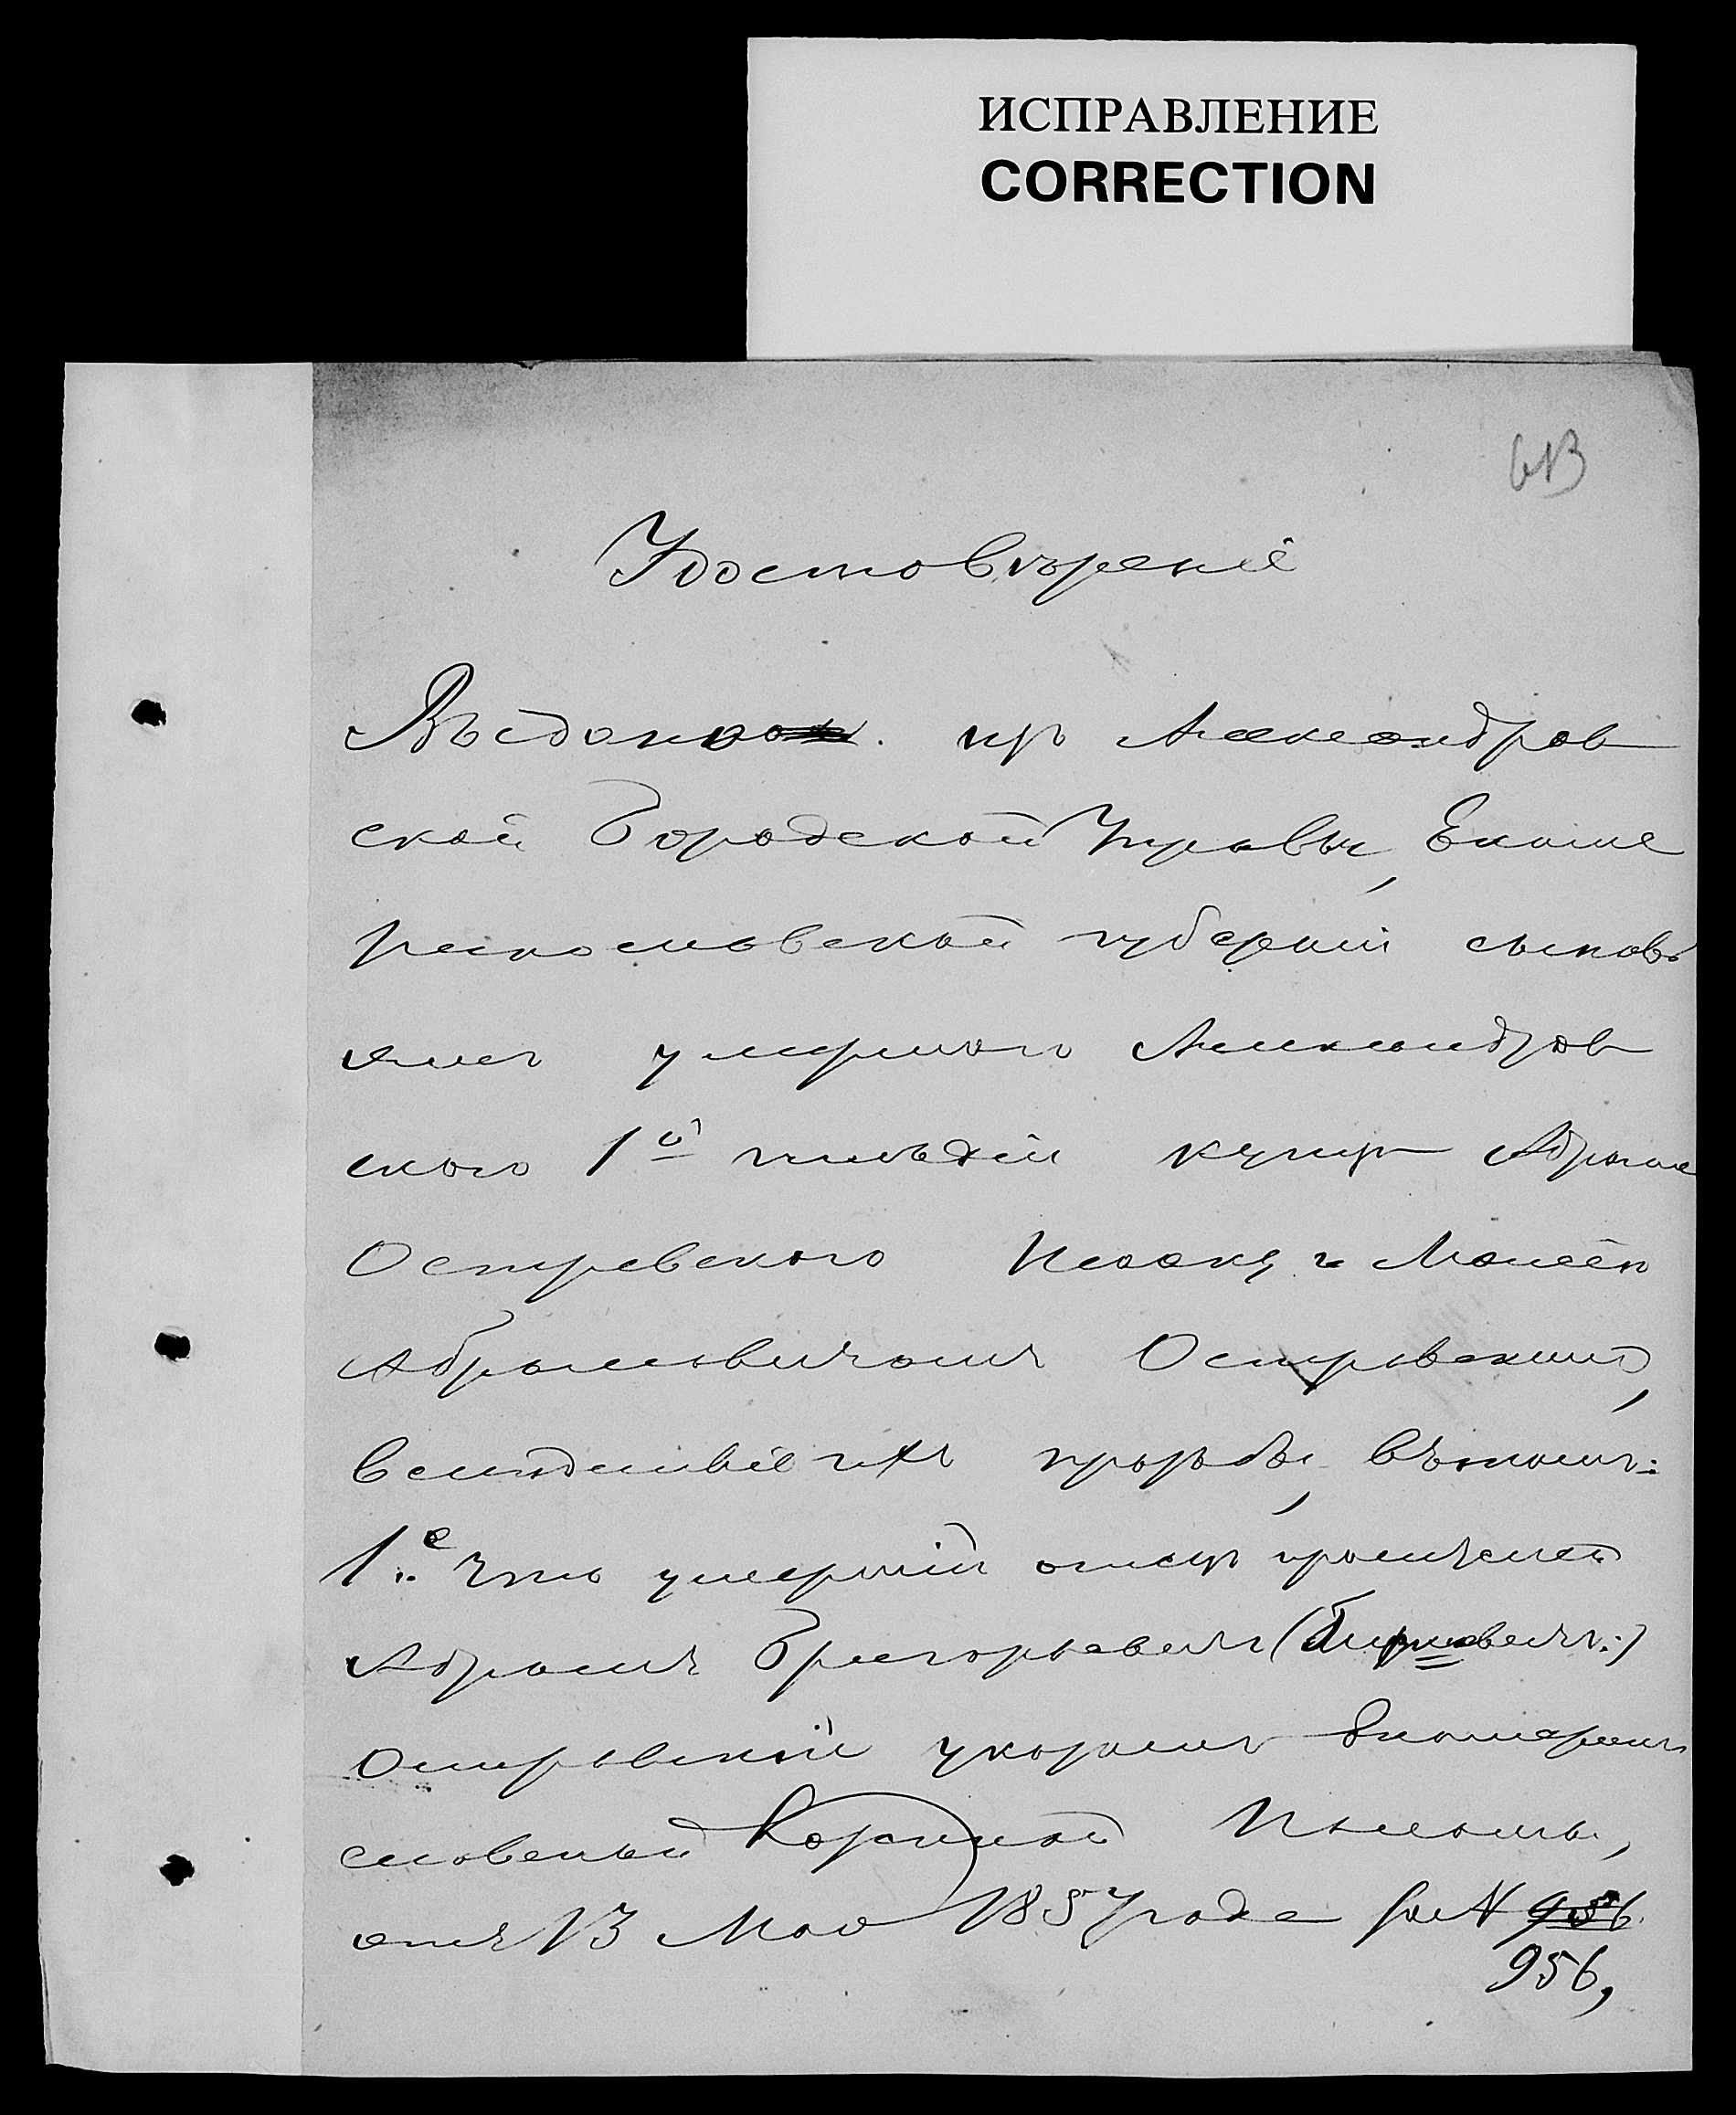 ИСПРАВЛЕНИЕ
CORRECTION
613
Удостовѣреніе
Выдано изъ Александров
ской Городской Управы, Екате
ринославской губерніи сыновь
ямъ умершаго Александров
скаго 1й гильдіи купца Абрама
Островскаго Исааку и Моисею
Абрамовичамъ Островскимъ,
вслѣдствіе ихъ просьбы, въ томъ:
1е. что умершій отецъ просителей
Абрамъ Григорьевичъ (
Островскій указомъ Екатерино
славской Казенной Палаты,
отъ 13 Мая 1857 года за N 956.
956,